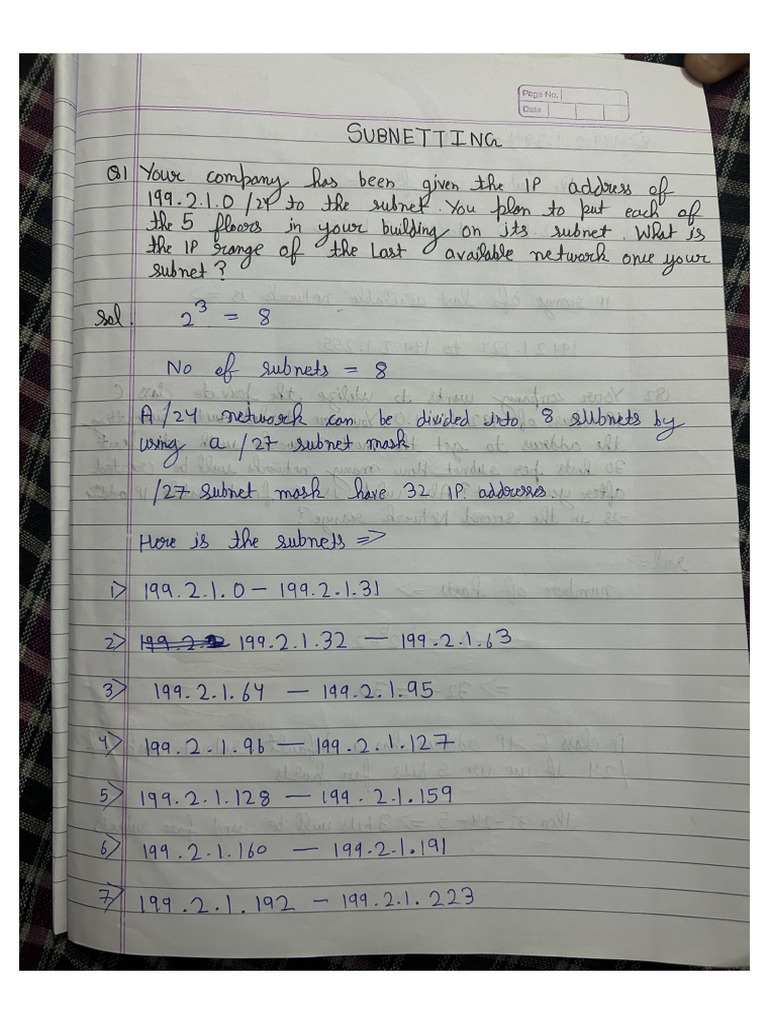 Page No.
Date
SUBNETTING
Q1 Your company has been given the IP address of
199.2.1.0 /24 to the subnet. You plan to put each of
the 5 floors in your building on its subnet. What is
the IP range of the Last available network once your
subnet?
Sol. 2^3 = 8
No of subnets = 8
A /24 network can be divided into 8 subnets by
using a /27 subnet mask
/27 subnet mask have 32 IP. addresses.
Here is the subnets =>
1> 199.2.1.0 — 199.2.1.31
2> 199.2.1.32 — 199.2.1.63
3> 199.2.1.64 — 199.2.1.95
4> 199.2.1.96 — 199.2.1.127
5> 199.2.1.128 — 199.2.1.159
6> 199.2.1.160 — 199.2.1.191
7> 199.2.1.192 — 199.2.1.223